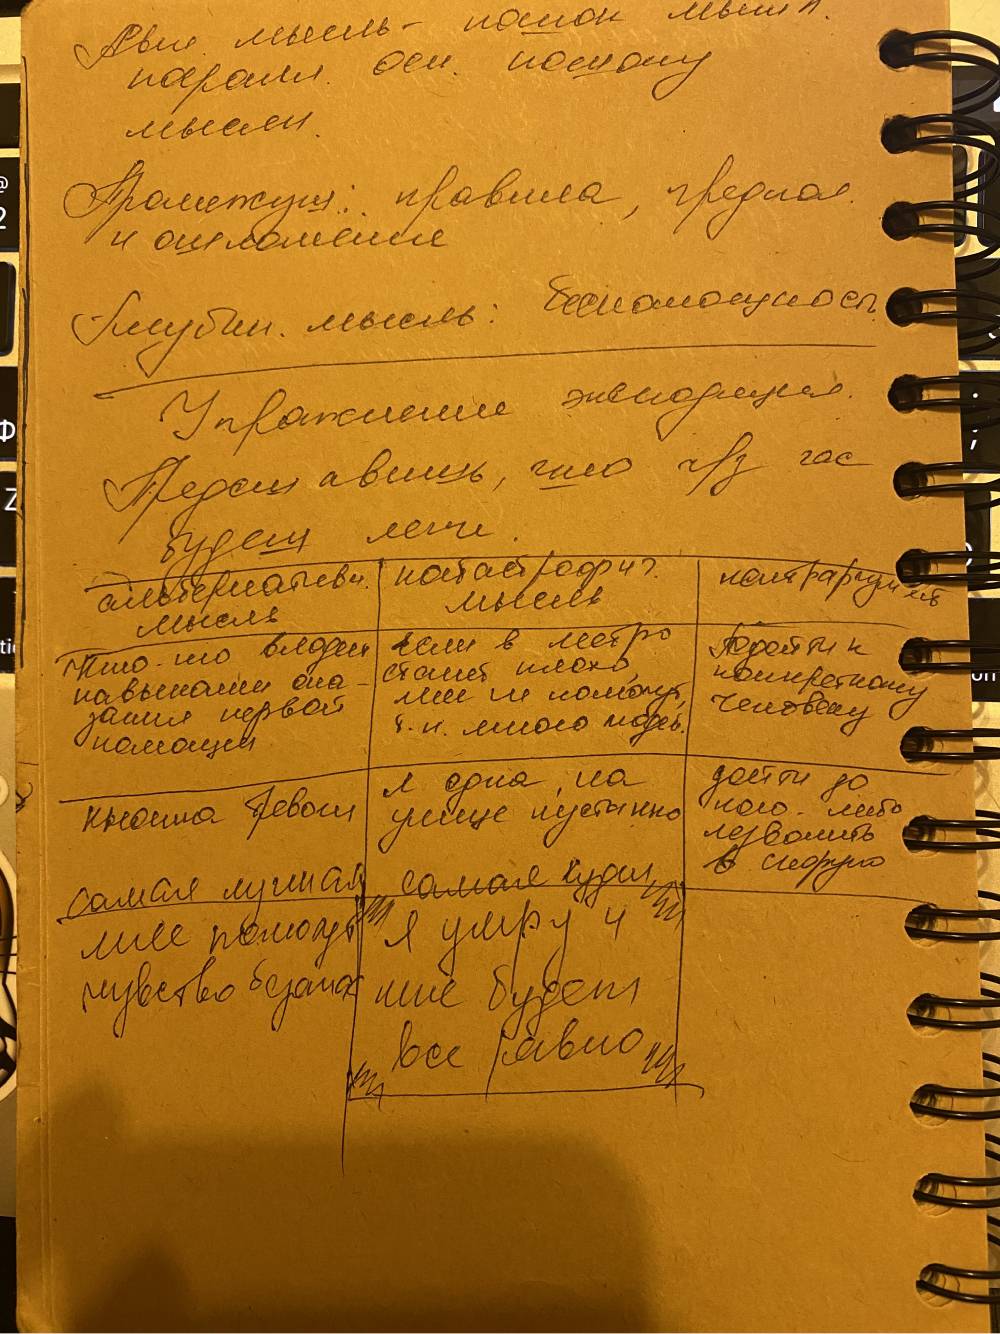 Авт. мысль - поток мысл.
паралл. осн. потоку
мысли.
Промежут.: правила, предпол.
и отношение
Глубин. мысль: беспомощность
Упражнение
Представить, что чрз час
будет легче.
альтернативн. мысль
катастрофич. мысль
контраргумент
Кто-то владеет
навыками ока-
зания первой
помощи
Если в метро
станет плохо,
мне не помогут,
т.к. много людей.
Подойти к
конкретному
человеку
кнопка тревоги
я одна, на
улице пустынно
дойти до
кого-либо
позвонить
в скорую
самая лучшая
самая худшая
мне помогут
чувство безопас
Я умру и
мне будет
все равно